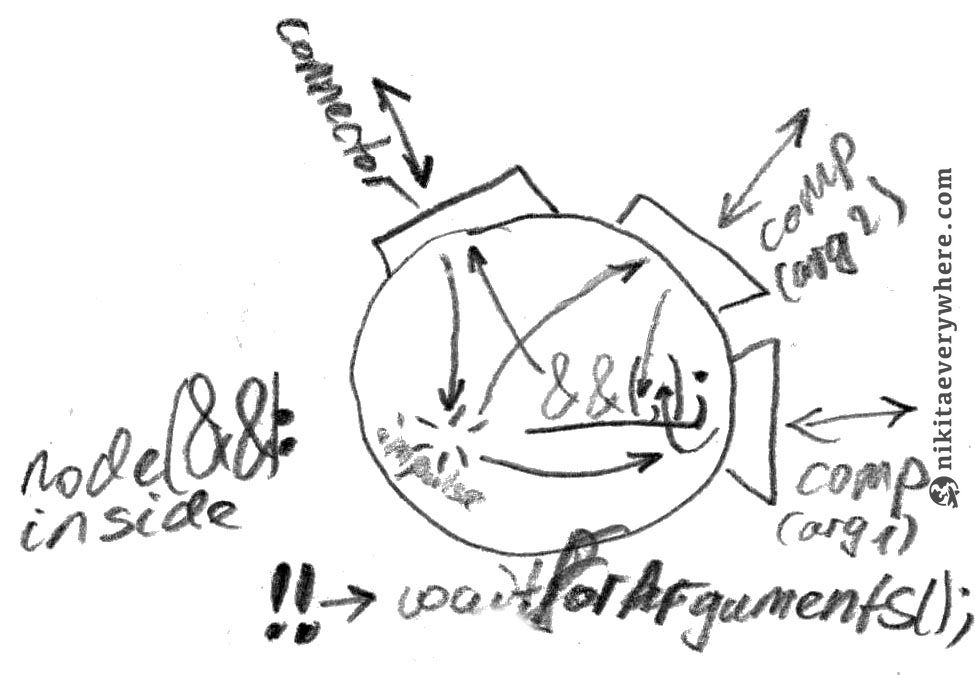 connector
comp
(arg2)
&&(,);
impulse
node(&&):
inside
comp
(arg1)
!! → waitForArguments();
nikitaeverywhere.com